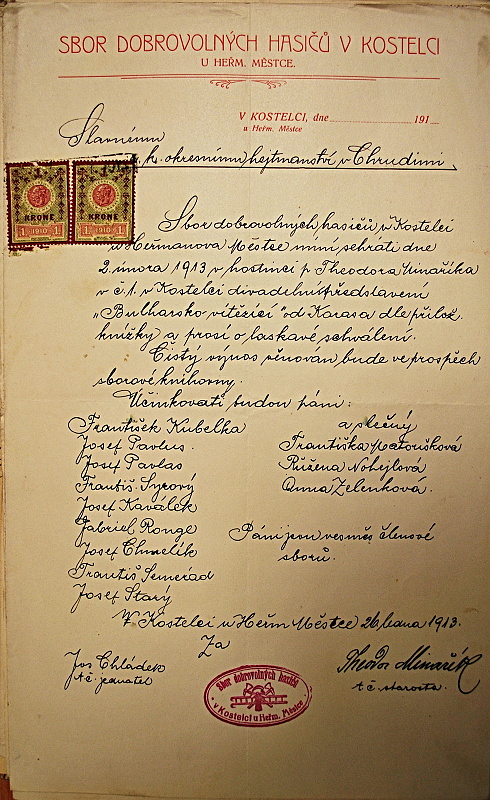 SBOR DOBROVOLNÝCH HASIČŮ V KOSTELCI
U HEŘM. MĚSTCE.
V KOSTELCI, dne 191
u Heřm. Městce
Slavnému
k. okresnímu hejtmanství v Chrudimi
1 1
KRONE KRONE
1 1910 1 1 1910 1
Sbor dobrovolných hasičů v Kostelci
u Heřmanova Městce míní sehráti dne
2. února 1913 v hostinci p. Theodora Minaříka
v č. 1. v Kostelci divadelní představení
„Bulharsko vítězící" od Karasa dle přilož.
knížky a prosí o laskavé schválení.
Čistý výnos věnován bude ve prospěch
sborové knihovny.
Účinkovati budou páni:
František Kubelka
Josef Pavlus.
Josef Pavlas
Františ. Syrový
Josef Kavalek
Gabriel Ronge
Josef Chmelík
Františ Semerád
Josef Starý
a slečny
Františka Matoušková
Růžena Nohejlová
Anna Zelenková.
Páni jsem vesměs členové
sboru.
V Kostelci u Heřm Městce 26. ledna 1913.
Za
Jos Chládek
t. č. jednatel
Theodor Minařík
t. č. starosta.
Sbor dobrovolných hasičů
v Kostelci u Heřm. Městce